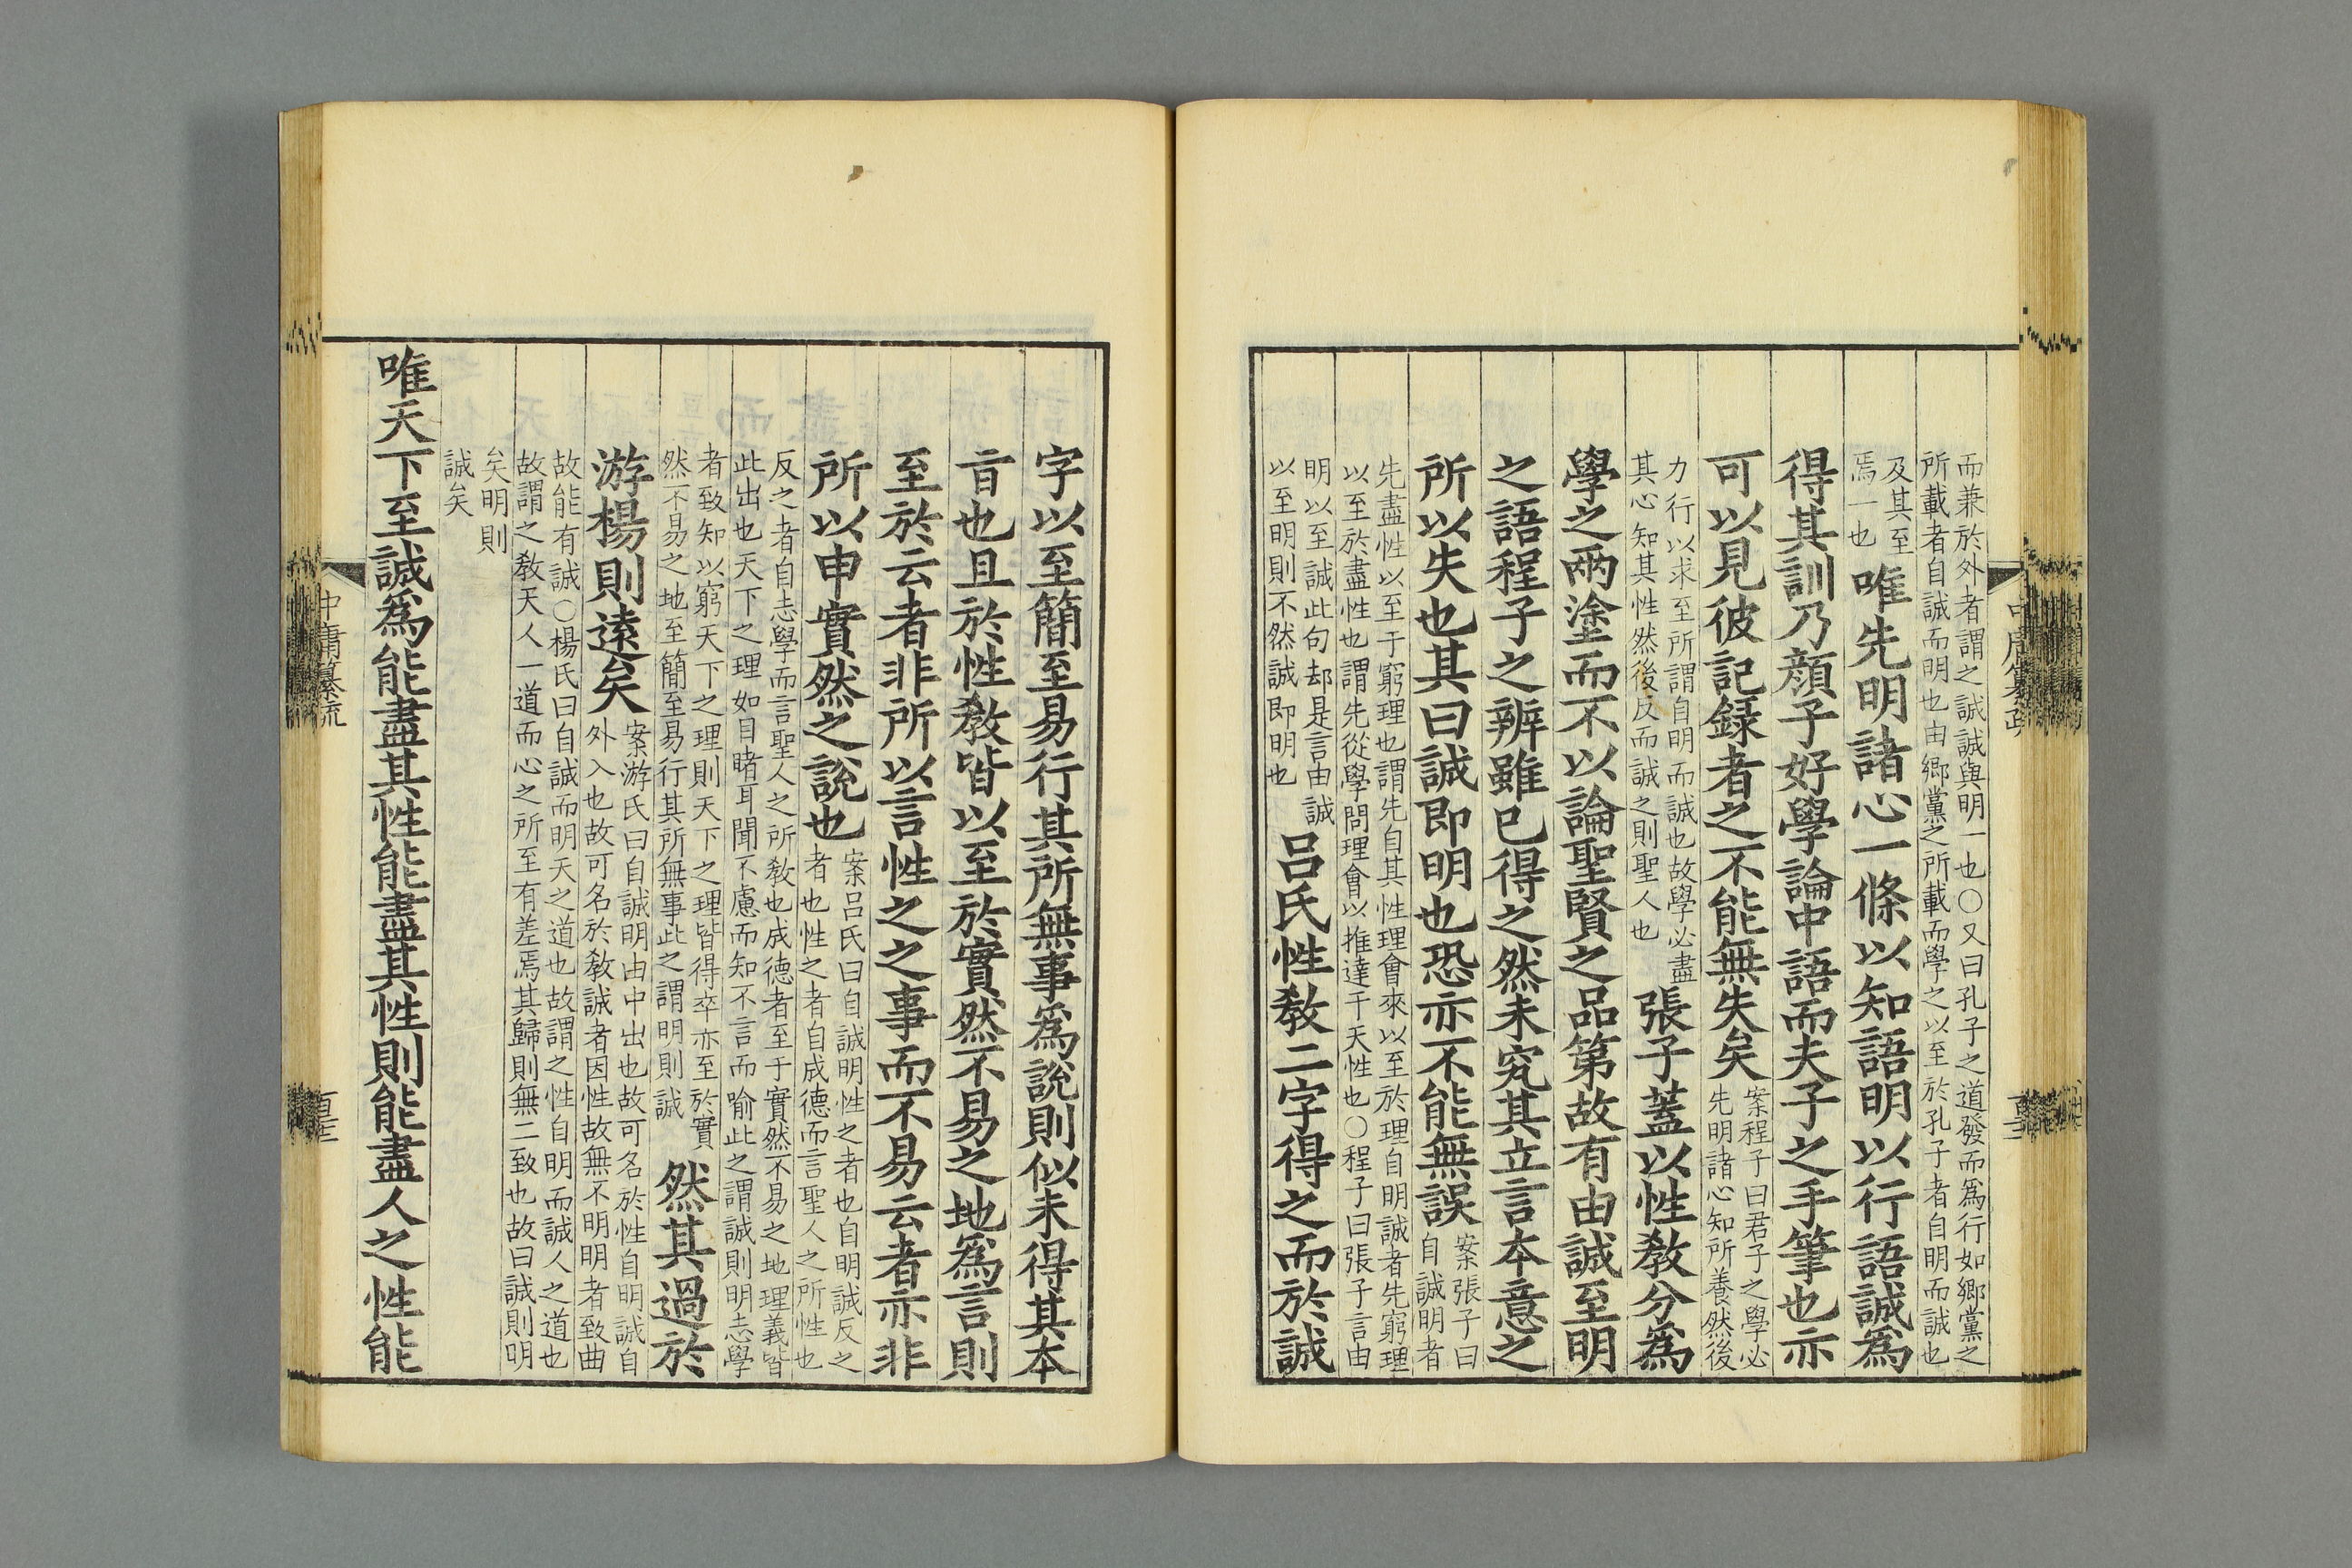 而兼於外者謂之誠誠與明一也○又曰孔子之道發而爲行如鄉黨之
所載者自誠而明也由鄉黨之所載而學之以至於孔子者自明而誠也
及其至
焉一也
唯先明諸心一條以知語明以行語誠爲
得其訓乃顔子好學論中語而夫子之手筆也亦
可以見彼記録者之不能無失矣
案程子曰君子之學必
先明諸心知所養然後
力行以求至所謂自明而誠也故學必盡
其心知其性然後反而誠之則聖人也
張子蓋以性教分爲
學之兩塗而不以論聖賢之品第故有由誠至明
之語程子之辨雖已得之然未究其立言本意之
所以失也其曰誠即明也恐亦不能無誤
案張子曰
自誠明者
先盡性以至于窮理也謂先自其性理會來以至於理自明誠者先窮理
以至於盡性也謂先從學問理會以推達于天性也○程子曰張子言由
明以至誠此句却是言由誠
以至明則不然誠即明也
呂氏性教二字得之而於誠
字以至簡至易行其所無事爲說則似未得其本
㫖也且於性教皆以至於實然不易之地爲言則
至於云者非所以言性之之事而不易云者亦非
所以申實然之說也
案呂氏曰自誠明性之者也自明誠反之
者也性之者自成德而言聖人之所性也
反之者自志學而言聖人之所教也成德者至于實然不易之地理義皆
此出也天下之理如目睹耳聞不慮而知不言而喻此之謂誠則明志學
者致知以窮天下之理則天下之理皆得卒亦至於實
然不易之地至簡至易行其所無事此之謂明則誠
然其過於
游楊則遠矣
案游氏曰自誠明由中出也故可名於性自明誠自
外入也故可名於教誠者因性故無不明明者致曲
故能有誠○楊氏曰自誠而明天之道也故謂之性自明而誠人之道也
故謂之教天人一道而心之所至有差焉其歸則無二致也故曰誠則明
矣明則
誠矣
唯天下至誠爲能盡其性能盡其性則能盡人之性能
中庸纂疏